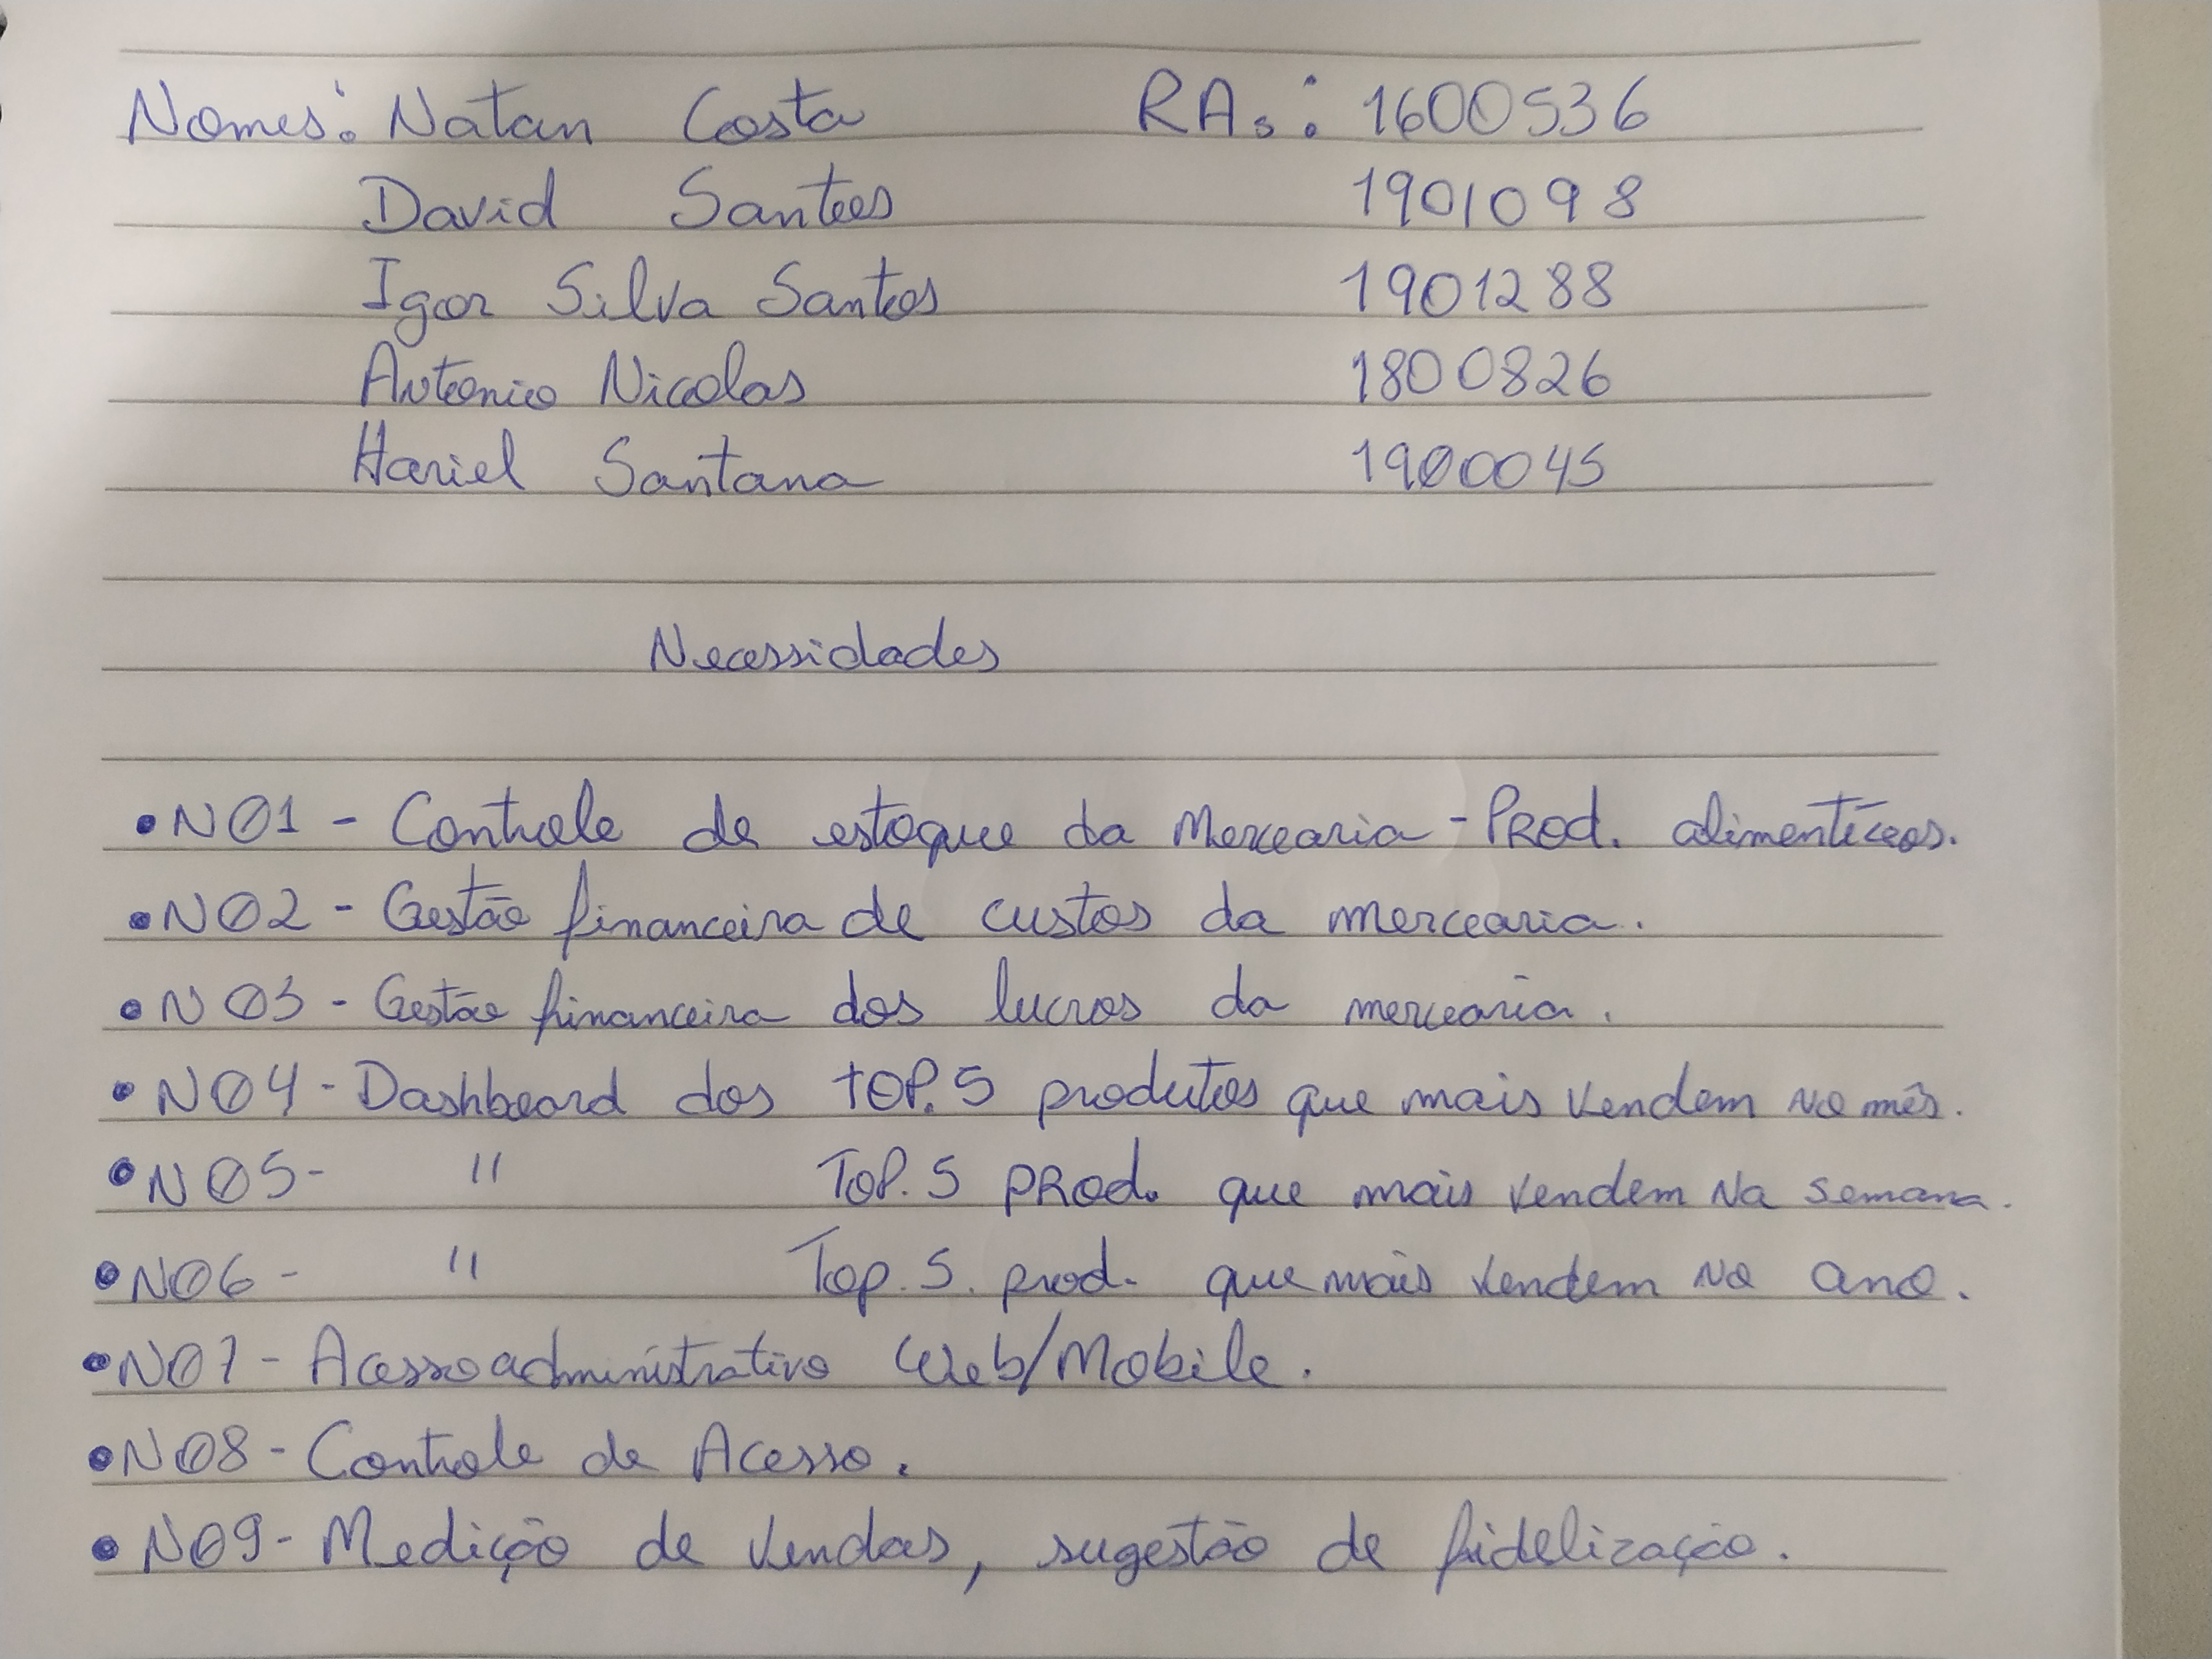 Nomes: Natan Costa RAs: 1600536
David Santos 1901098
Igor Silva Santos 1901288
Antonio Nicolas 1800826
Hariel Santana 1900045
Necessidades
• N01 - Controle de estoque da Mercearia - Prod. alimentícios.
• N02 - Gestão financeira de custos da mercearia.
• N03 - Gestão financeira dos lucros da mercearia.
• N04 - Dashboard dos TOP. 5 produtos que mais vendem no mês.
• N05 - " Top. 5 prod. que mais vendem na semana.
• N06 - " Top. 5. prod. que mais vendem no ano.
• N07 - Acesso administrativo Web/Mobile.
• N08 - Controle de Acesso.
• N09 - Medição de vendas, sugestão de fidelização.